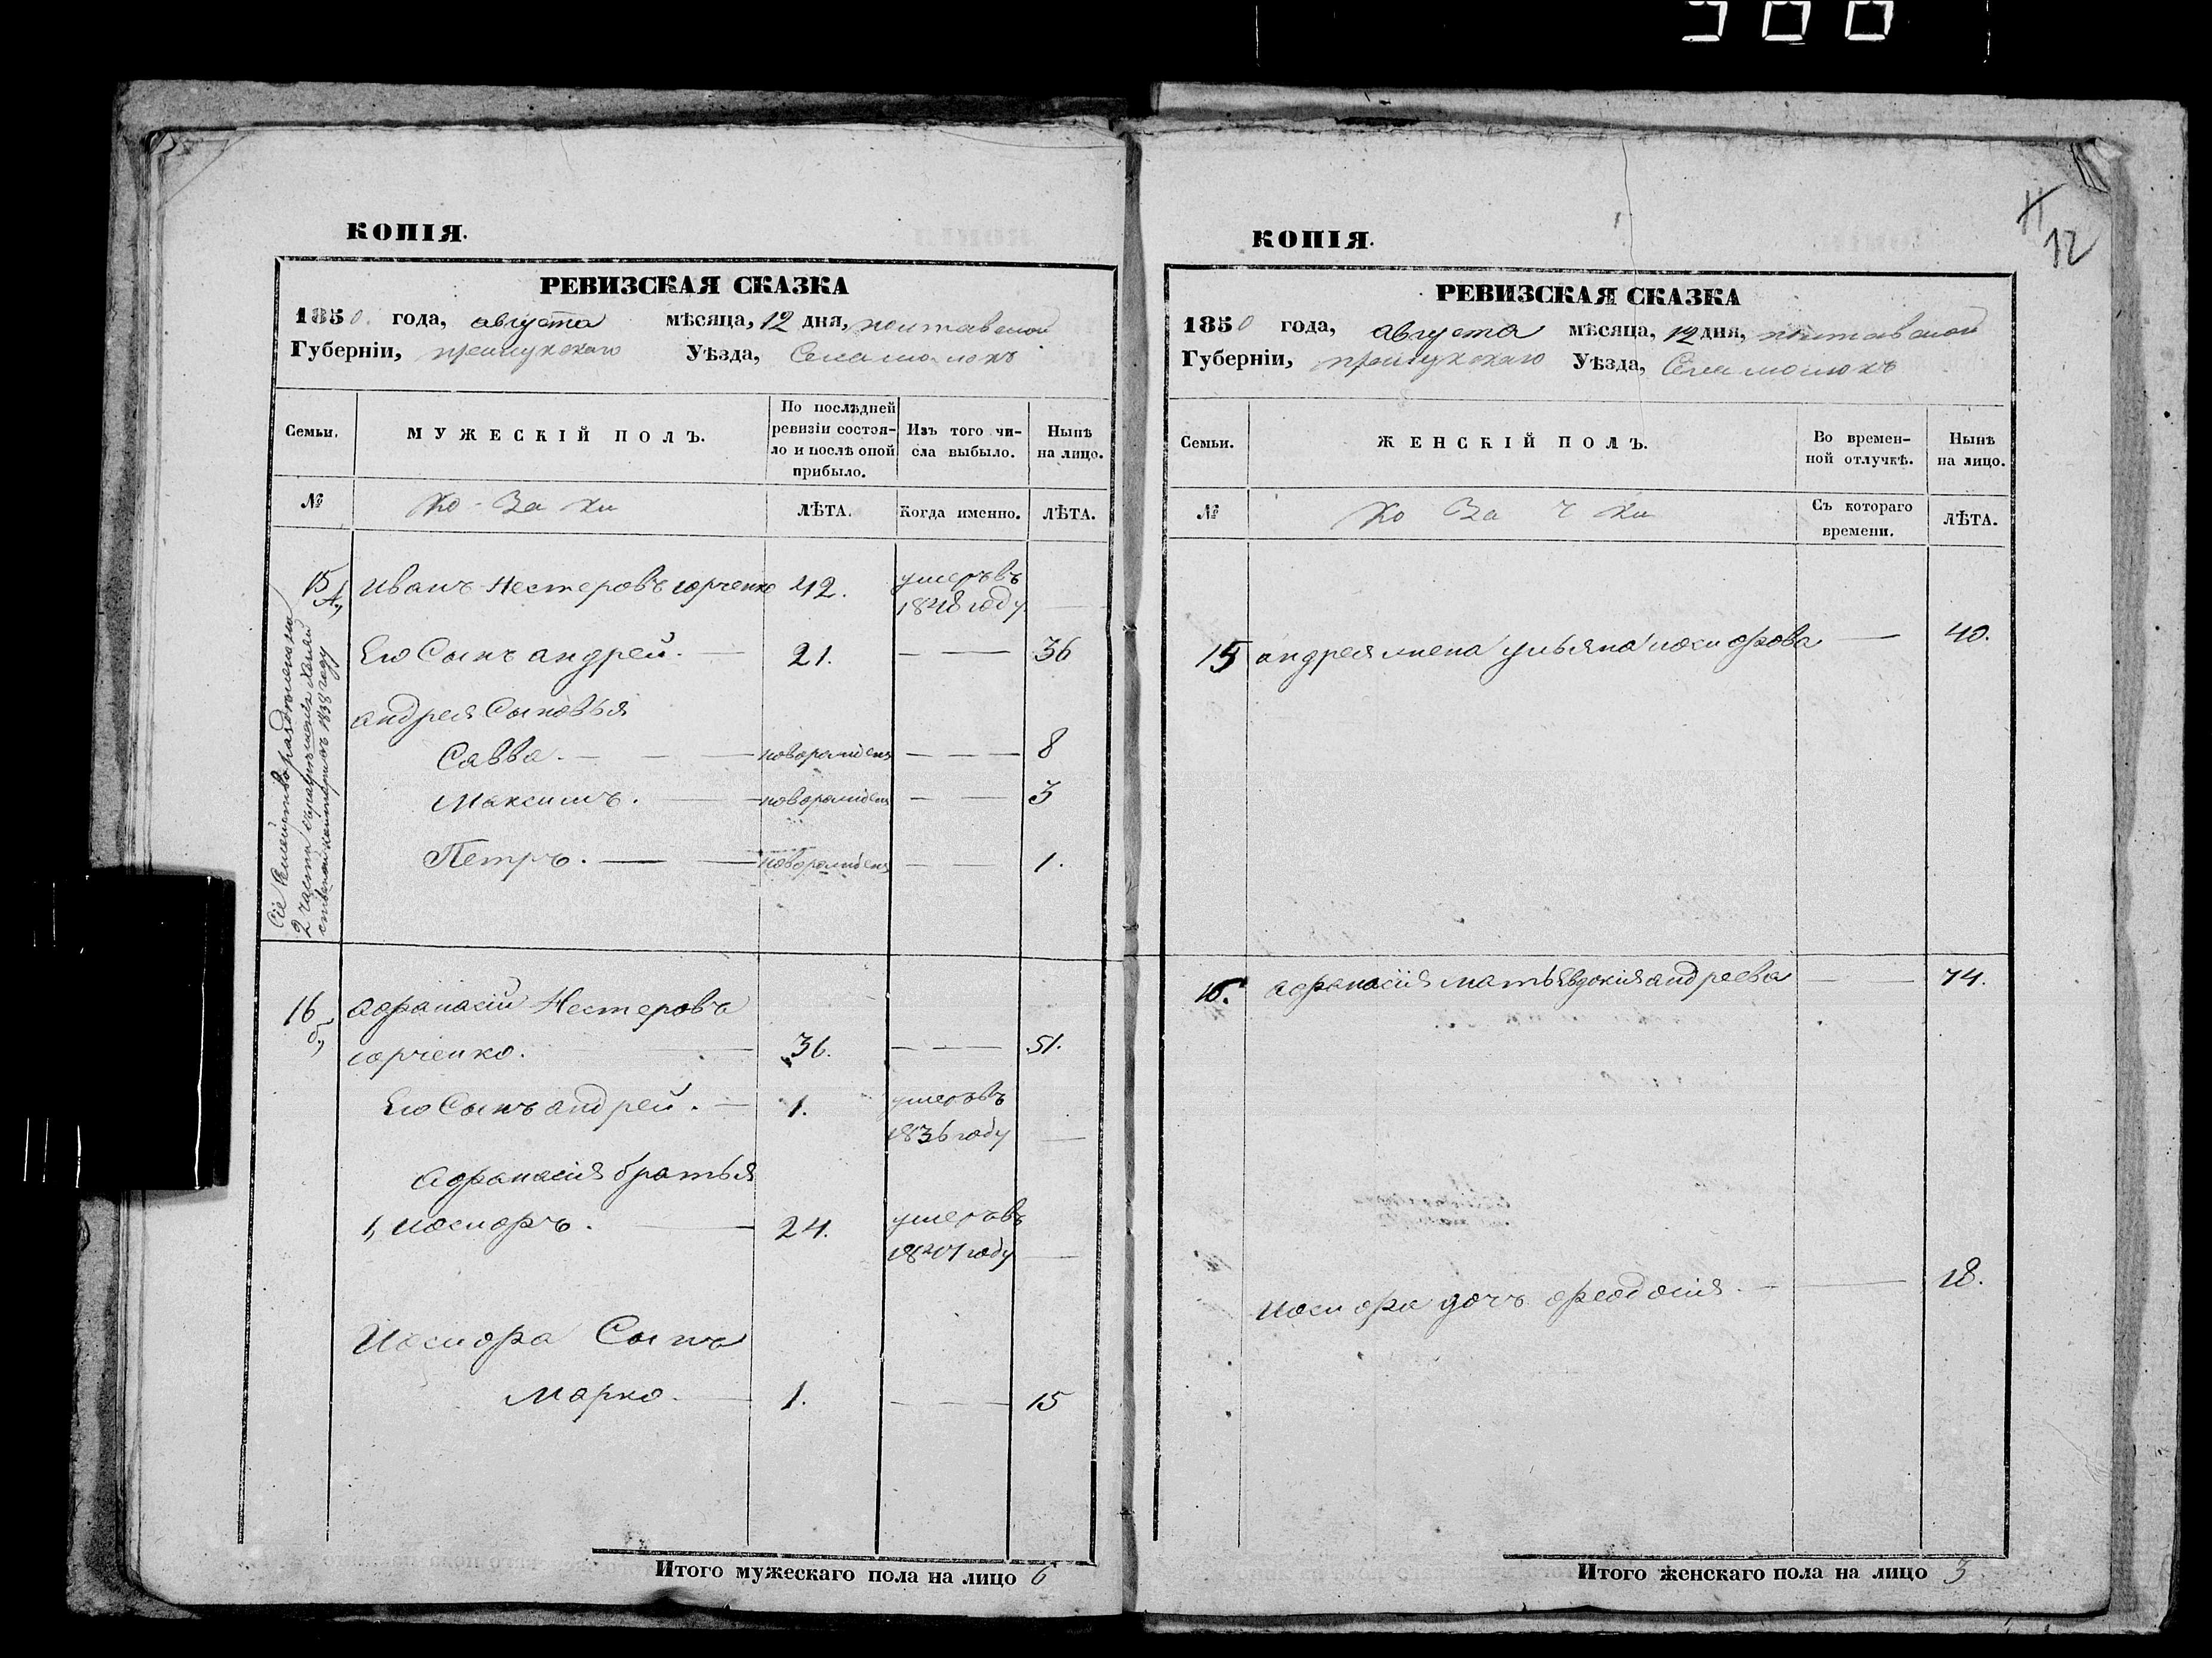 500
КОПІЯ.
РЕВИЗСКАЯ СКАЗКА
1850. года, августа мѣсяца, 12 дня, полтавской
Губерніи, прилукскаго Уѣзда, Села
Семьи.
МУЖЕСКІЙ ПОЛЪ.
По послѣдней ревизіи состоя-
ло и послѣ оной прибыло.
Изъ того чи-
сла выбыло.
Нынѣ
на лицо.
№
Ко-за ки
ЛѢТА.
Когда именно.
ЛѢТА.
Сіе Семейство разделено на
2 части
1838 году
15 А., Иванъ Нестеровъ юрченко 42. умеръ въ
1848 году —
Его Сынъ андрей. — 21. — — 36
андрея Сыновья
Савва. — — — новорожденъ — — — 8
Максимъ. — — новорожденъ — — 3
Петръ. — — новорожденъ — — 1.
16 б., афанасій Нестеровъ
юрченко. — 36. — — — 51.
Его Сынъ андрей. — 1. умеръ въ
1836 году —
афанасія братья
1, иосифъ. — 24. умеръ въ
1847 году —
Иосифа Сынъ
Марко. — 1. — — — 15
Итого мужескаго пола на лицо 6
11
12
КОПІЯ.
РЕВИЗСКАЯ СКАЗКА
1850 года, августа мѣсяца, 12 дня, полтавской
Губерніи, прилукскаго Уѣзда, Села
Семьи.
ЖЕНСКІЙ ПОЛЪ.
Во времен-
ной отлучкѣ.
Нынѣ
на лицо.
№
Ко за ч ки
Съ котораго
времени.
ЛѢТА.
15 андрея жена ульяна иосифова — 40.
16. афанасія мать Евдокія андреева — — 74.
Иосифа дочь феодосія. — — 18.
Итого женскаго пола на лицо 3